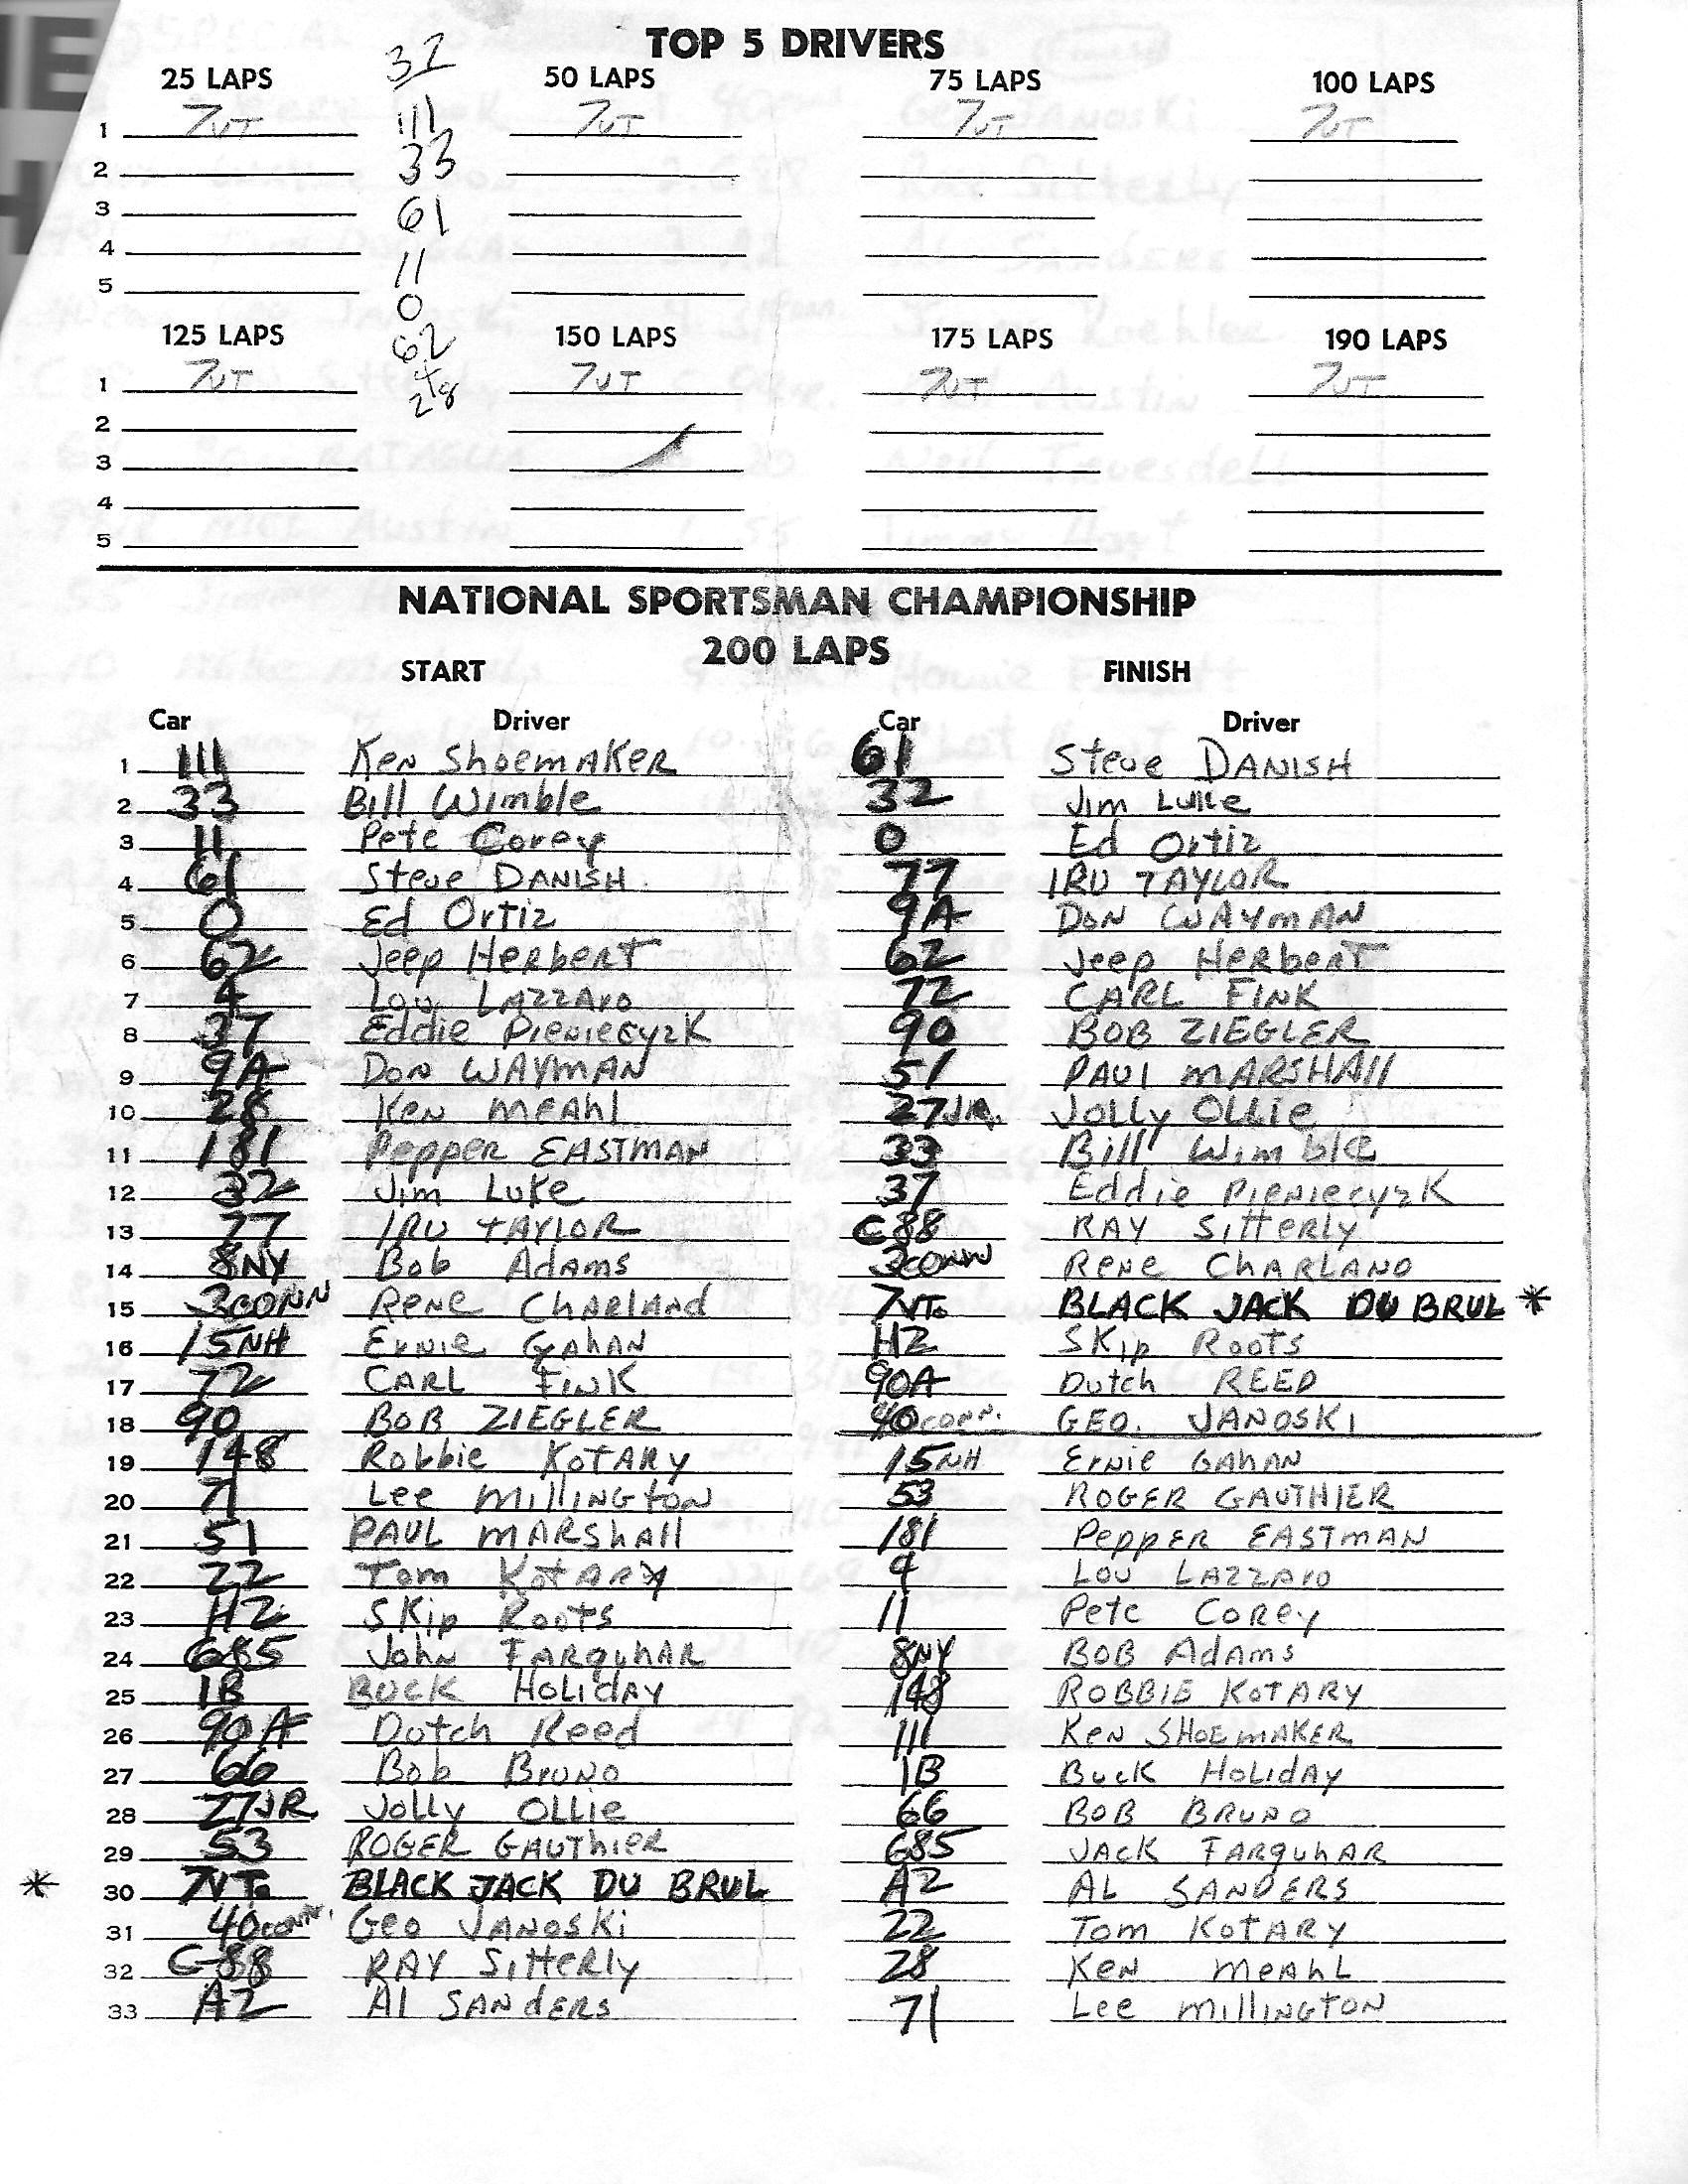 TOP 5 DRIVERS
25 LAPS 50 LAPS 75 LAPS 100 LAPS
32
1 7VT 7VT 7VT 7VT
111
2
33
3
61
4
11
5
0
125 LAPS 150 LAPS 175 LAPS 190 LAPS
62
1 7VT 7VT 7VT 7VT
4
28
2
3
4
5
NATIONAL SPORTSMAN CHAMPIONSHIP
200 LAPS
START FINISH
Car Driver Car Driver
1 111 Ken Shoemaker 61 Steve DANISH
2 33 Bill Wimble 32 Jim Luke
3 11 Pete Corey 0 Ed Ortiz
4 61 Steve DANISH 77 IRV TAYLOR
5 0 Ed Ortiz 9A DON WAYMAN
6 62 Jeep HerberT 62 Jeep HerberT
7 4 Lou LAZZAro 72 CARL FINK
8 37 Eddie PieNiecyzK 90 BOB ZIEGLER
9 9A DON WAYMAN 51 PAUl MARSHAll
10 28 Ken Meahl 27JR. JOLLY OLLiE
11 181 Pepper EASTMAN 33 Bill Wimble
12 32 Jim Luke 37 Eddie PieNiecyzK
13 77 IRV TAYLOR C88 RAY Sitterly
14 8NY Bob Adams 3CONN Rene CHARLAND
15 3CONN Rene CHARLAND 7VT. BLACK JACK DU BRUL *
16 15NH Ernie GAHAN H2 Skip Roots
17 72 CARL FINK 90A Dutch REED
18 90 BOB ZIEGLER 40CONN. GEO. JANOSKI
19 148 Robbie KOTARY 15NH Ernie GAHAN
20 71 Lee MillINGTON 53 ROGER GAUTHIER
21 51 PAUL MARSHAll 181 Pepper EASTMAN
22 22 Tom KOTARY 4 LOU LAZZAro
23 H2 Skip Roots 11 Pete Corey
24 685 John FARQUHAR 8NY BOB AdAms
25 1B BUCK HOLIDAY 148 ROBBIE KOTARY
26 90A Dutch Reed 111 Ken SHOEMAKER
27 66 Bob BruNO 1B Buck HOLIDAY
28 27JR. Jolly OLLie 66 BOB BRUNO
29 53 ROGER GAUThier 685 JACK FARQUHAR
* 30 7VT. BLACK JACK DU BRUL A2 AL SANDERS
31 40CONN. Geo JANOSKi 22 Tom KOTARY
32 C-88 RAY Sitterly 28 Ken MeAhL
33 A2 Al SANdERS 71 Lee MillINGTON